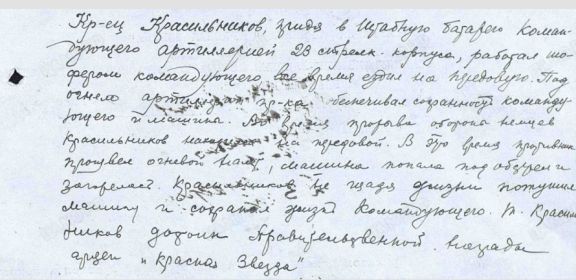 Кр-ец Красильников, придя в Штабную батарею Коман-
дующего артиллерией 28 стрелк. корпуса, работал шо-
фером командующего, все время ездил на передовую. Под
огнем артиллерии пр-ка обеспечивал сохранность команду-
ющего и машины. Во время прорыва обороны немцев
Красильников находился на передовой. В это время противник
произвел огневой налет, машина попала под обстрел и
загорелась. Красильников не щадя жизни потушил
машину и сохранил жизнь Командующего. т. Красиль
ников достоин Правительственной награды
орден "Красная Звезда"